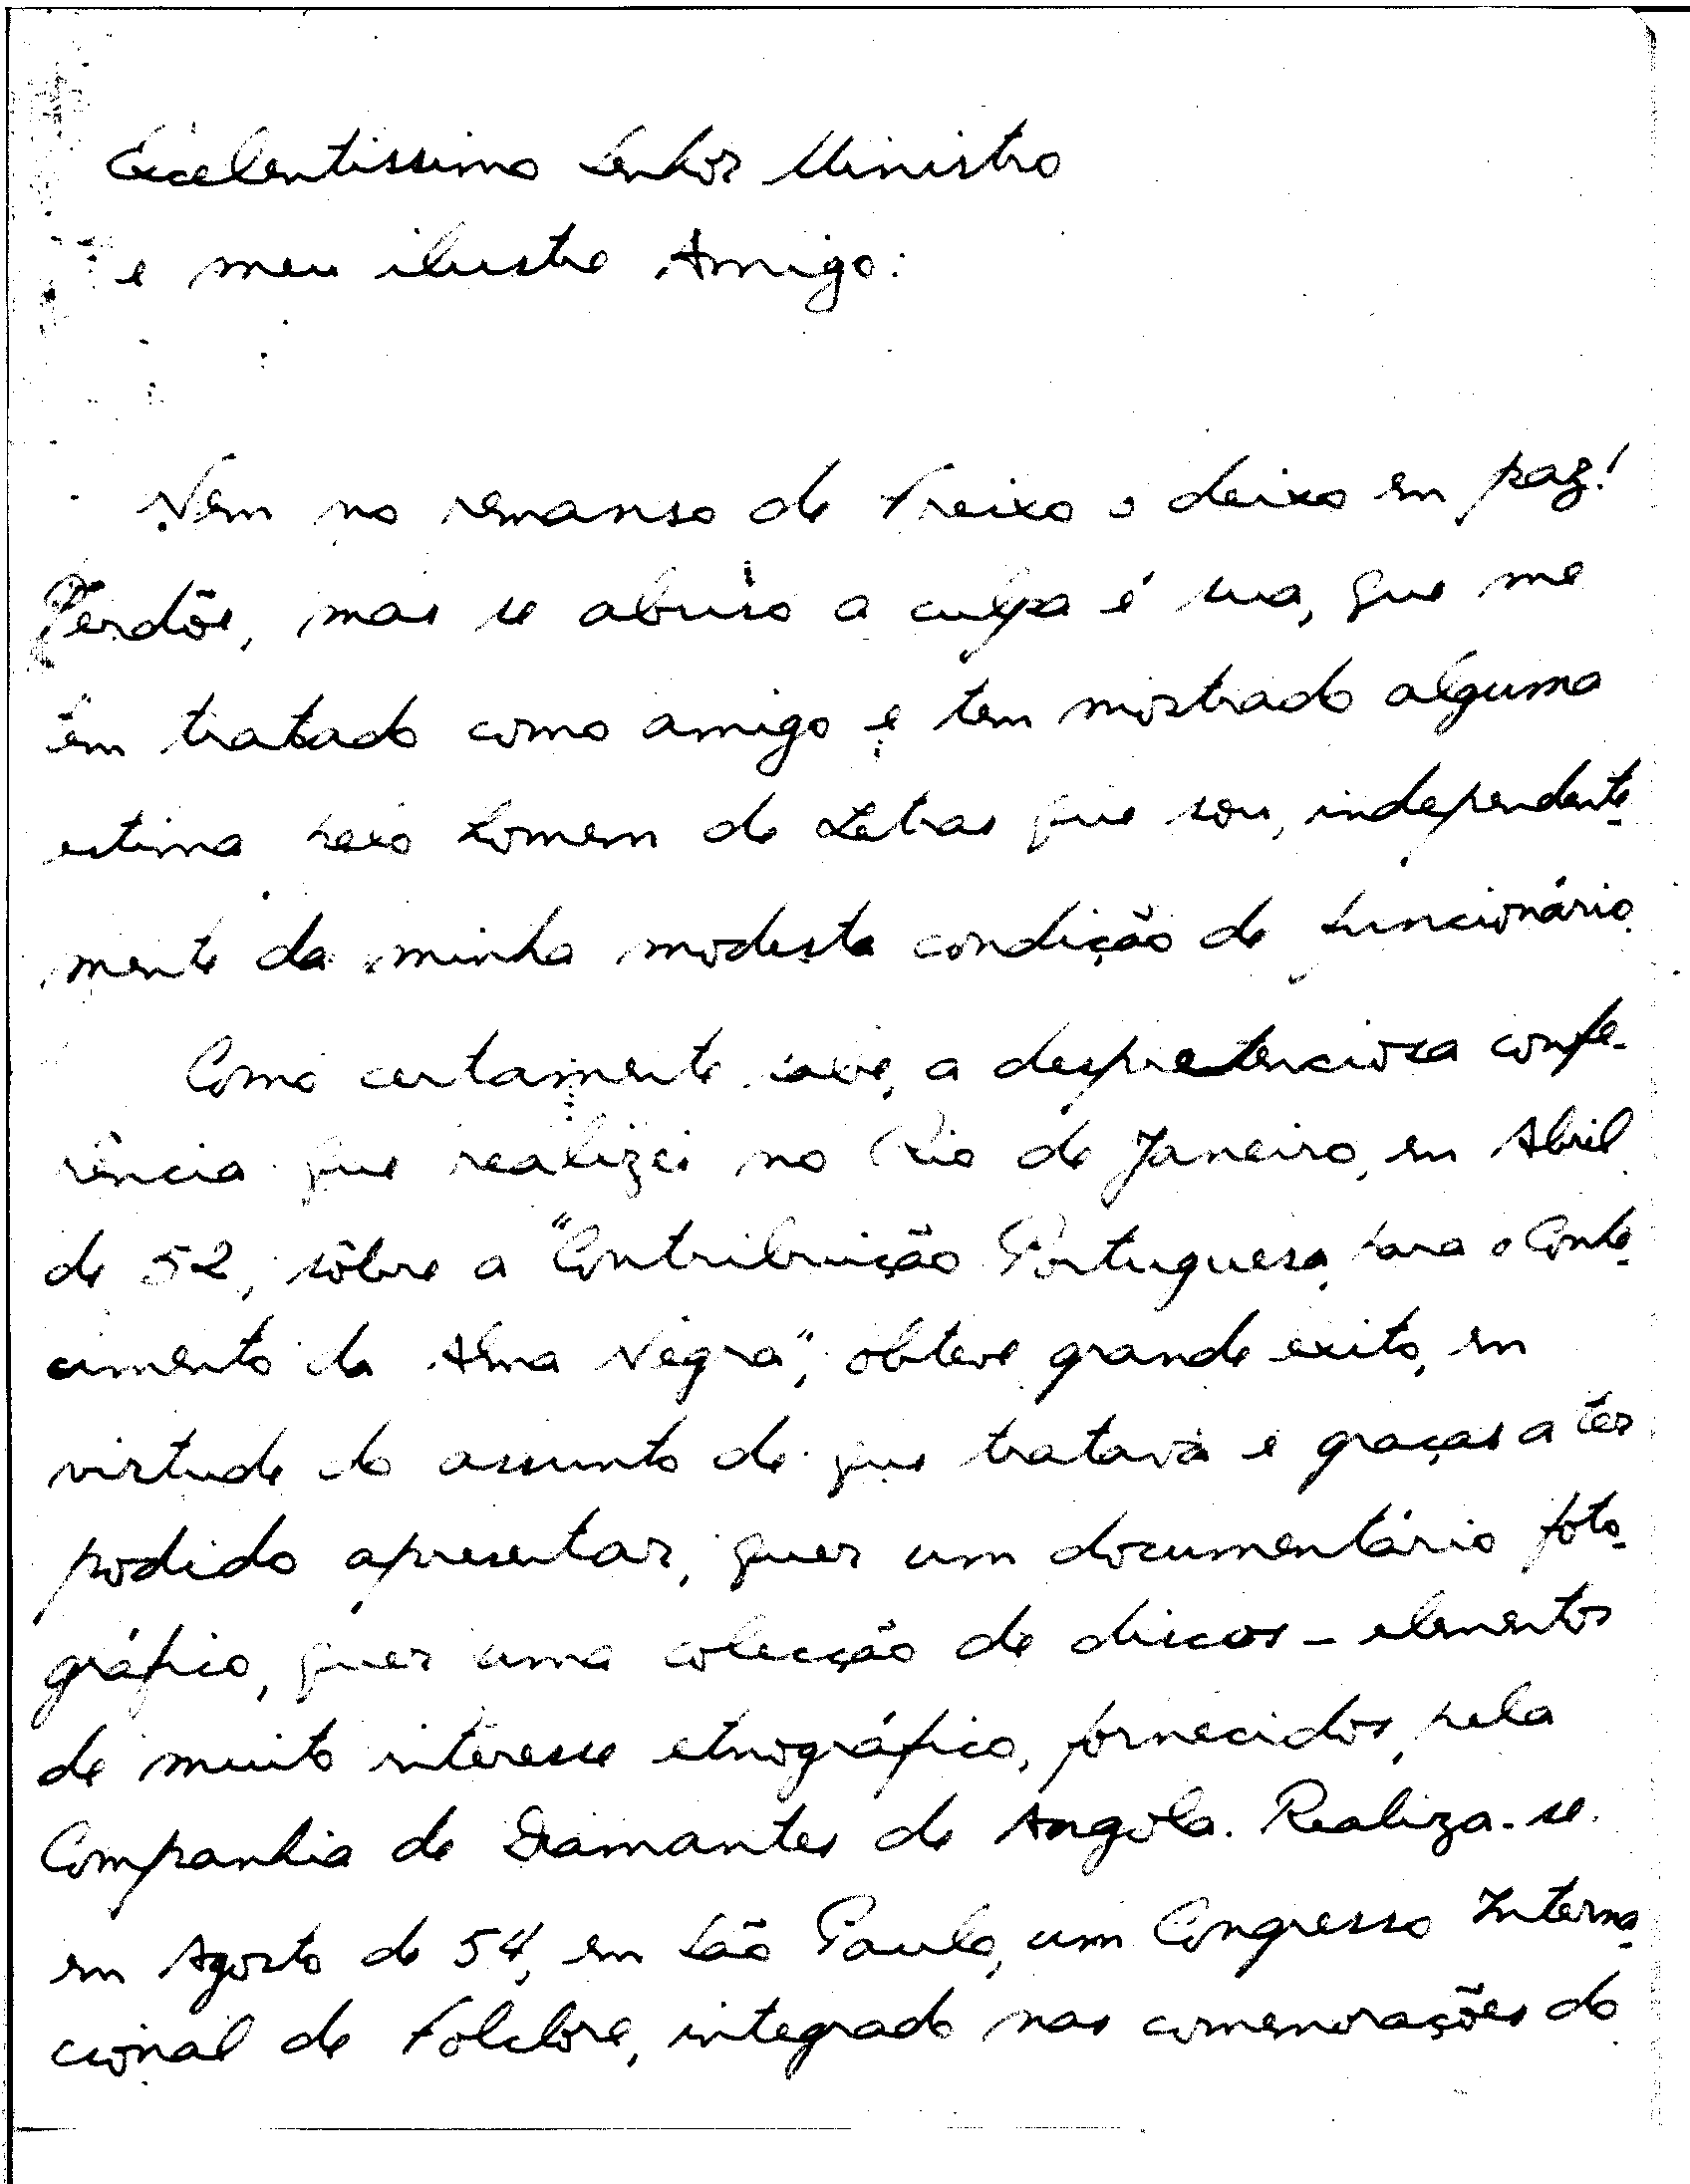 Excelentissimo Senhor Ministro
e meu ilustre Amigo:
Nem no remanso de Freixo o deixo em paz!
Perdôe, mas se abuso a culpa é sua, que me
tem tratado como amigo e tem mostrado alguma
estima pelo Homem de Letras que sou, independente-
mente da minha modesta condição de funcionário.
Como certamente sabe, a despretenciosa confe-
rência que realizei no Rio de Janeiro, em Abril
de 52, sôbre a "Contribuição Portuguesa para o Conhe-
cimento da Alma Negra", obteve grande exito, em
virtude do assunto de que tratava e graças a ter
podido apresentar, quer um documentário foto-
gráfico, quer uma colecção de discos - elementos
de muito interesse etnográfico, fornecidos pela
Companhia de Diamantes de Angola. Realiza-se
em Agosto de 54, em São Paulo, um Congresso Interna-
cional de Folclore, integrado nas comemorações do